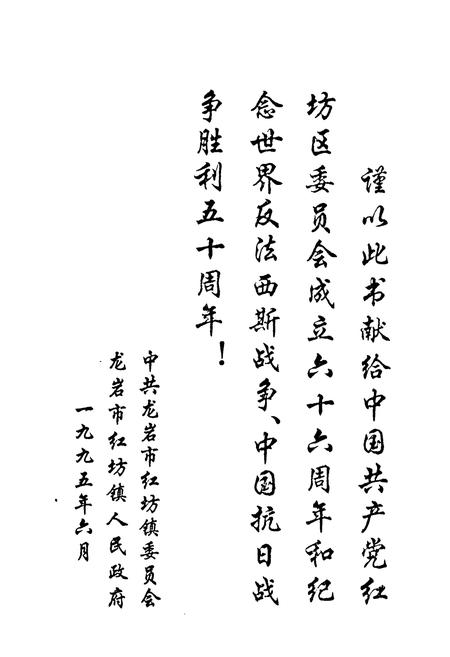 谨以此书献给中国共产党红
坊区委员会成立六十六周年和纪
念世界反法西斯战争、中国抗日战
争胜利五十周年！
中共龙岩市红坊镇委员会
龙岩市红坊镇人民政府
一九九五年六月